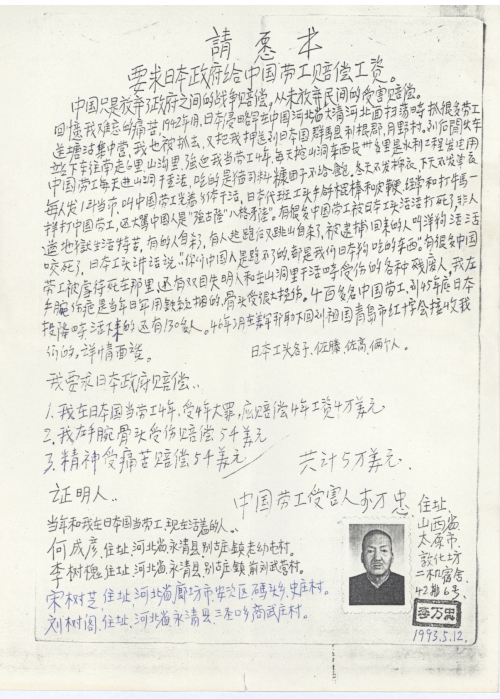 請愿书
要求日本政府给中国劳工赔偿工资。
中国只是放弃了政府之间的战争赔偿,从未放弃民间的受害赔偿。
回憶我难忘的痛苦,1942年 月,日本侵略军在中国河北省大清河北面扫荡時抓很多劳工
送塘沽集中营,我也被抓去,又把我押送到日本国群馬县利根郡月野村,
並下车往南走 里山沟里,强迫我当劳工4年,每天挖山洞
中国劳工每天进山洞干重活,吃的是 糠面子不给飽,冬天不发棉衣,下天不发单衣
每人发 ,日本代班工头手拿 棍棒和皮鞭,经常和打牛馬一
样打中国劳工,还大罵中国人是 有很多中国劳工被日本工头活活打死了,非人
道地獄生活特苦,有的人自杀了,有人逃跑后又跳山自杀了,被逮捕回来的人叫洋狗活活
咬死了,日本工头讲话说:"你们中国人是跑不了的,都是我们日本狗吃的东西。"有很多中国
劳工被 待死在那里,还有双目失明人和在山洞里干活時受伤的各种残废人。我左
手腕伤疤是当年日军用 的,骨头受很大挫伤。4百多名中国劳工,到45年底日本
投降時活下来的还有130多人。46年3月在美军 下回到祖国青島市红十字会接收我
们的,詳情面谈。
日本工头名子,佐藤,佐高,俩个人。
我要求日本政府赔偿..
1.我在日本国当劳工4年,受4年大罪,应赔偿4年工资4万美元
2.我左手腕骨头受伤赔偿5千美元
3.精神受痛苦赔偿5千美元
共计5万美元.
证明人..
中国劳工受害人李万忠
住址
山西省
太原市
敦化坊
二机宿舍
42排6号
当年和我在日本国当劳工,现在活着的人..
何成彦,住址,河北省,永清县,别古庄鎮,走幼屯村。
李树槐,住址,河北省,永清县,别古庄鎮,前刘武营村。
宋树芝,住址,河北省,廊坊市,安次区,碼头乡,史庄村。
刘树阁,住址,河北省,永清县,三圣口乡,商武庄村。
李万忠
1993.5.12.